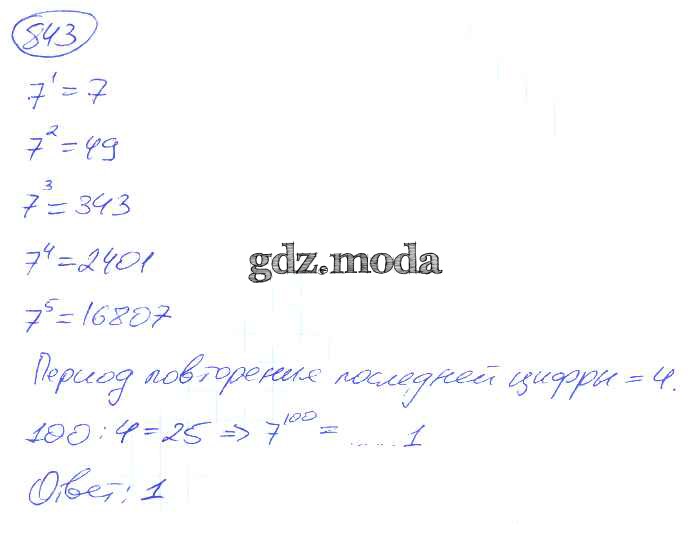 843
7¹ = 7
7² = 49
7³ = 343
7⁴ = 2401
gdz.moda
7⁵ = 16807
Период повторения последней цифры = 4.
100 : 4 = 25 => 7¹⁰⁰ = ..... 1
Ответ: 1